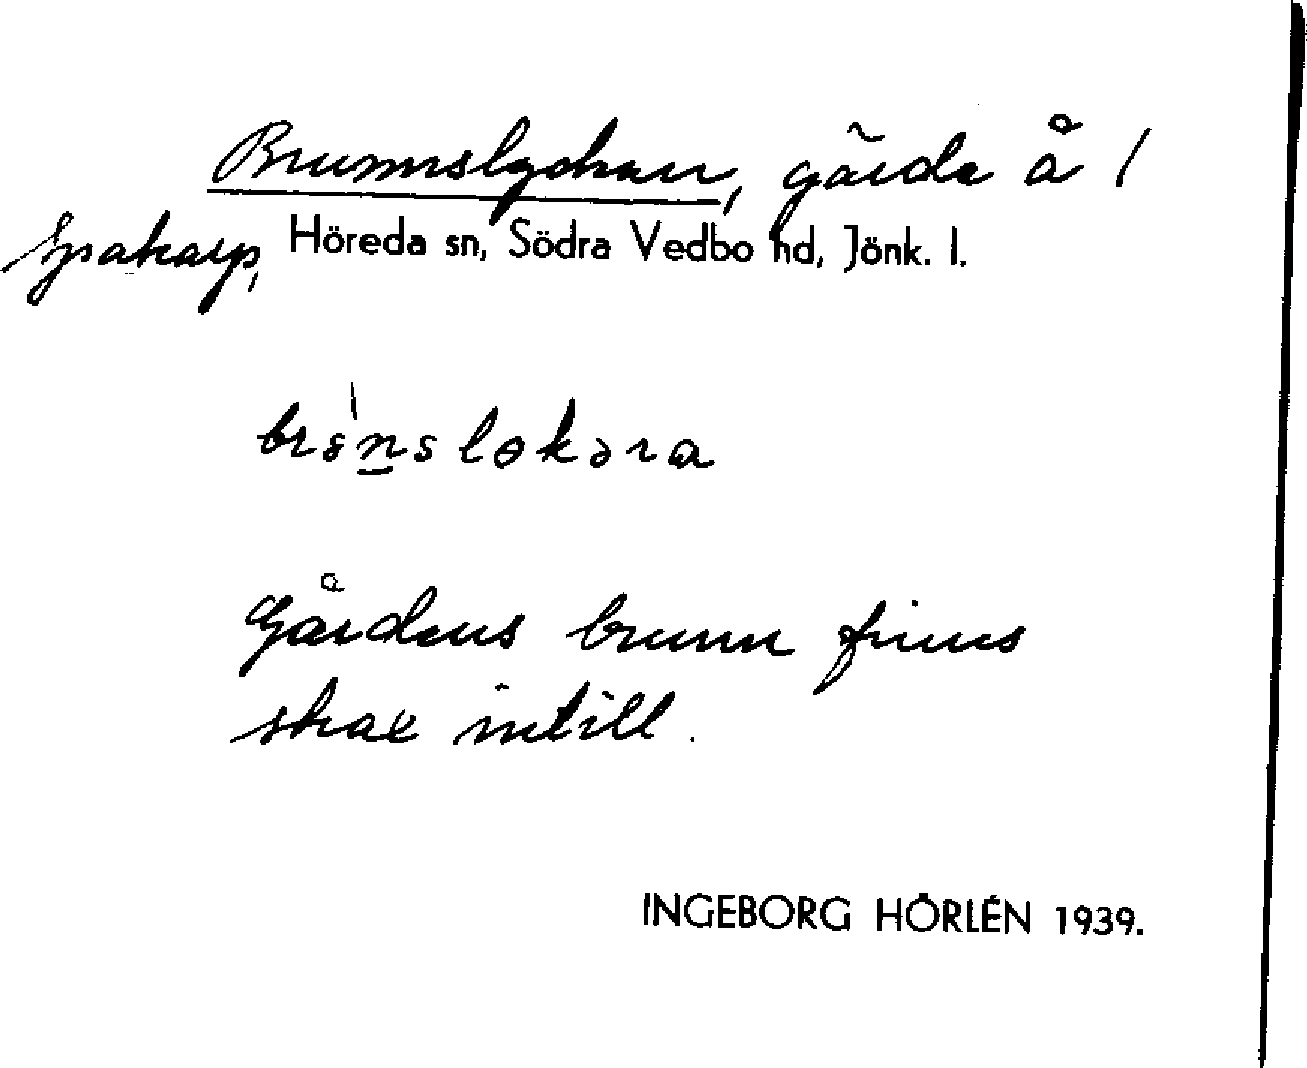 Brunnslyckan, gärde å 1
Spakarp, Höreda sn, Södra Vedbo hd, Jönk. l.
Gårdens brunn finns
strax intill.
INGEBORG HÖRLÉN 1939.